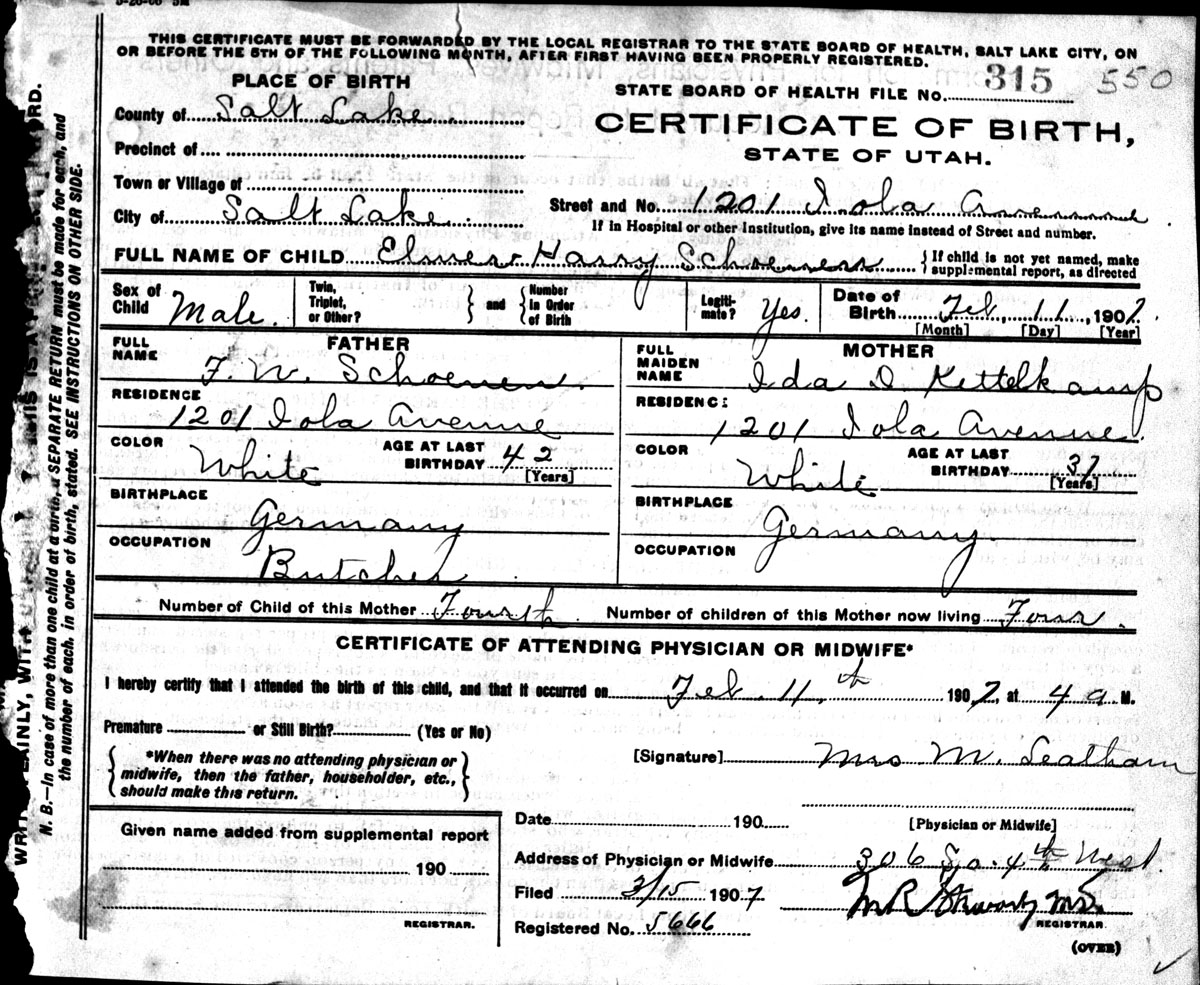 THIS CERTIFICATE MUST BE FORWARDED BY THE LOCAL REGISTRAR TO THE STATE BOARD OF HEALTH, SALT LAKE CITY, ON
OR BEFORE THE 5TH OF THE FOLLOWING MONTH, AFTER FIRST HAVING BEEN PROPERLY REGISTERED.
PLACE OF BIRTH
STATE BOARD OF HEALTH FILE No. 315 550
County of Salt Lake.
CERTIFICATE OF BIRTH,
Precinct of
STATE OF UTAH.
Town or Village of
City of Salt Lake. Street and No. 1201 Iola Avenue
If in Hospital or other Institution, give its name instead of Street and number.
FULL NAME OF CHILD Elmer Harry Schoenen { If child is not yet named, make supplemental report, as directed
Sex of Child Male. Twin, Triplet, or Other? } and { Number in Order of Birth Legiti-mate? Yes. Date of Birth Feb, 11, 1907.
[Month] [Day] [Year]
FATHER
FULL NAME F. W. Schoenen.
RESIDENCE 1201 Iola Avenue
COLOR White AGE AT LAST BIRTHDAY 42 [Years]
BIRTHPLACE Germany
OCCUPATION Butcher
MOTHER
FULL MAIDEN NAME Ida D. Kettelkamp
RESIDENCE 1201 Iola Avenue.
COLOR White AGE AT LAST BIRTHDAY 37 [Years]
BIRTHPLACE Germany
OCCUPATION
Number of Child of this Mother Fourth. Number of children of this Mother now living Four.
CERTIFICATE OF ATTENDING PHYSICIAN OR MIDWIFE*
I hereby certify that I attended the birth of this child, and that it occurred on Feb. 11th 1907, at 4 a M.
Premature or Still Birth? (Yes or No)
{ *When there was no attending physician or midwife, then the father, householder, etc., should make this return. }
[Signature] Mrs M. Leatham
[Physician or Midwife]
Date 190
Given name added from supplemental report
190
REGISTRAR.
Address of Physician or Midwife 306 So. 4th West
Filed 3/15 1907 M.D.
REGISTRAR
Registered No. 5666
(OVER)
N. B.—In case of more than one child at a birth, a SEPARATE RETURN must be made for each, and
the number of each, in order of birth, stated. SEE INSTRUCTIONS ON OTHER SIDE.